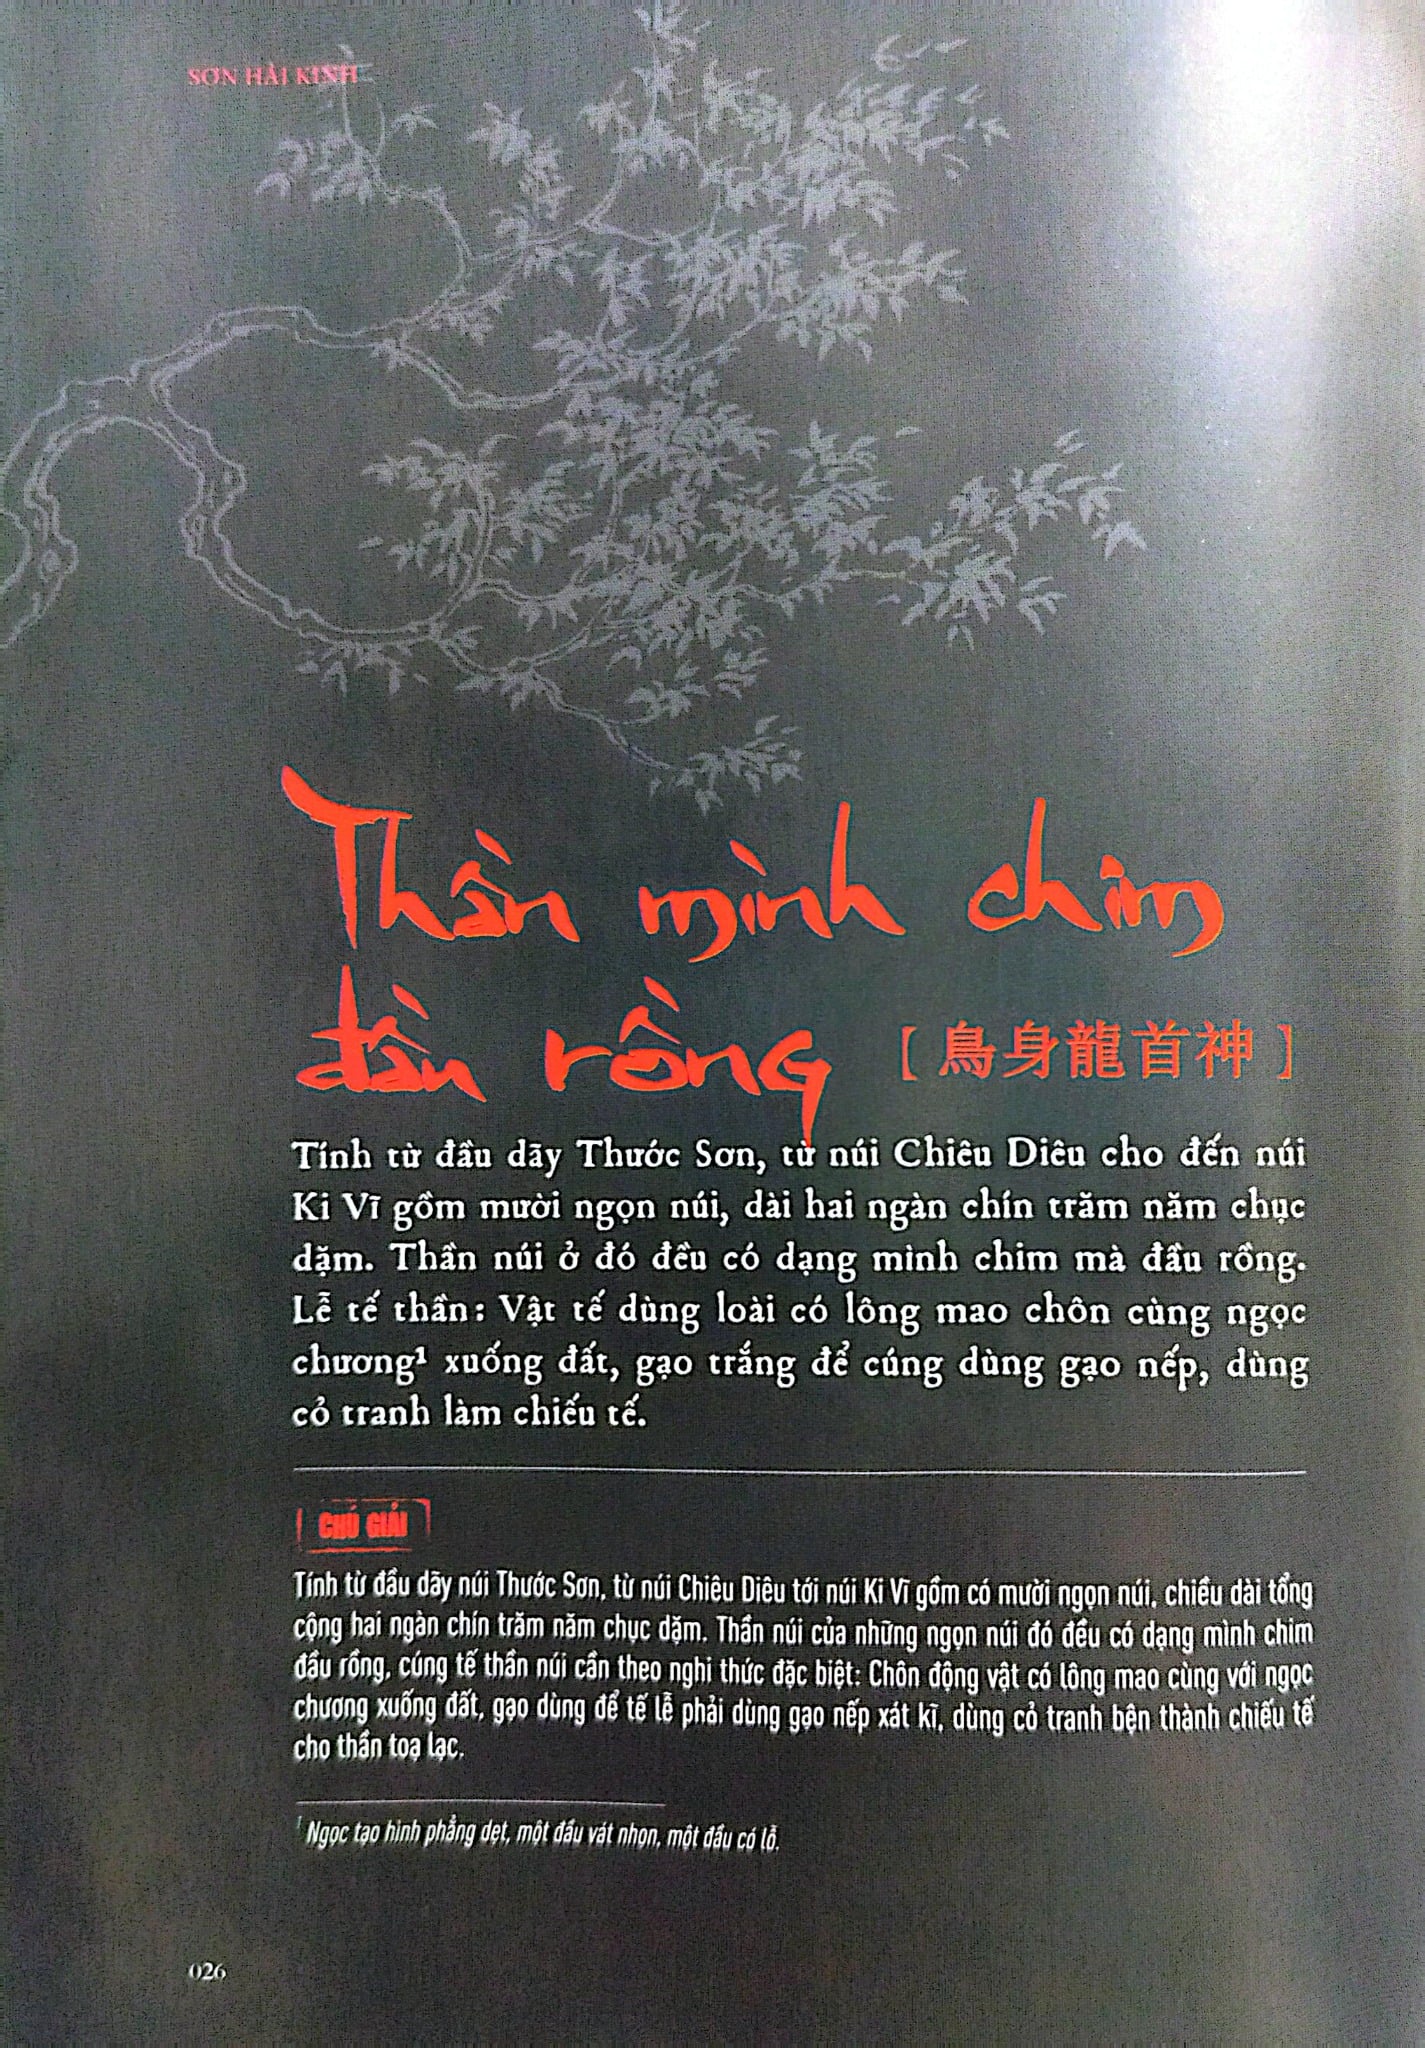 SƠN HẢI KINH
Thần mình chim
đầu rồng [鳥身龍首神]
Tính từ đầu dãy Thước Sơn, từ núi Chiêu Diêu cho đến núi
Ki Vĩ gồm mười ngọn núi, dài hai ngàn chín trăm năm chục
dặm. Thần núi ở đó đều có dạng mình chim mà đầu rồng.
Lễ tế thần: Vật tế dùng loài có lông mao chôn cùng ngọc
chương¹ xuống đất, gạo trắng để cúng dùng gạo nếp, dùng
cỏ tranh làm chiếu tế.
CHÚ GIẢI
Tính từ đầu dãy núi Thước Sơn, từ núi Chiêu Diêu tới núi Ki Vĩ gồm có mười ngọn núi, chiều dài tổng
cộng hai ngàn chín trăm năm chục dặm. Thần núi của những ngọn núi đó đều có dạng mình chim
đầu rồng, cúng tế thần núi cần theo nghi thức đặc biệt: Chôn động vật có lông mao cùng với ngọc
chương xuống đất, gạo dùng để tế lễ phải dùng gạo nếp xát kĩ, dùng cỏ tranh bện thành chiếu tế
cho thần toạ lạc.
¹ Ngọc tạo hình phẳng dẹt, một đầu vát nhọn, một đầu có lỗ.
026